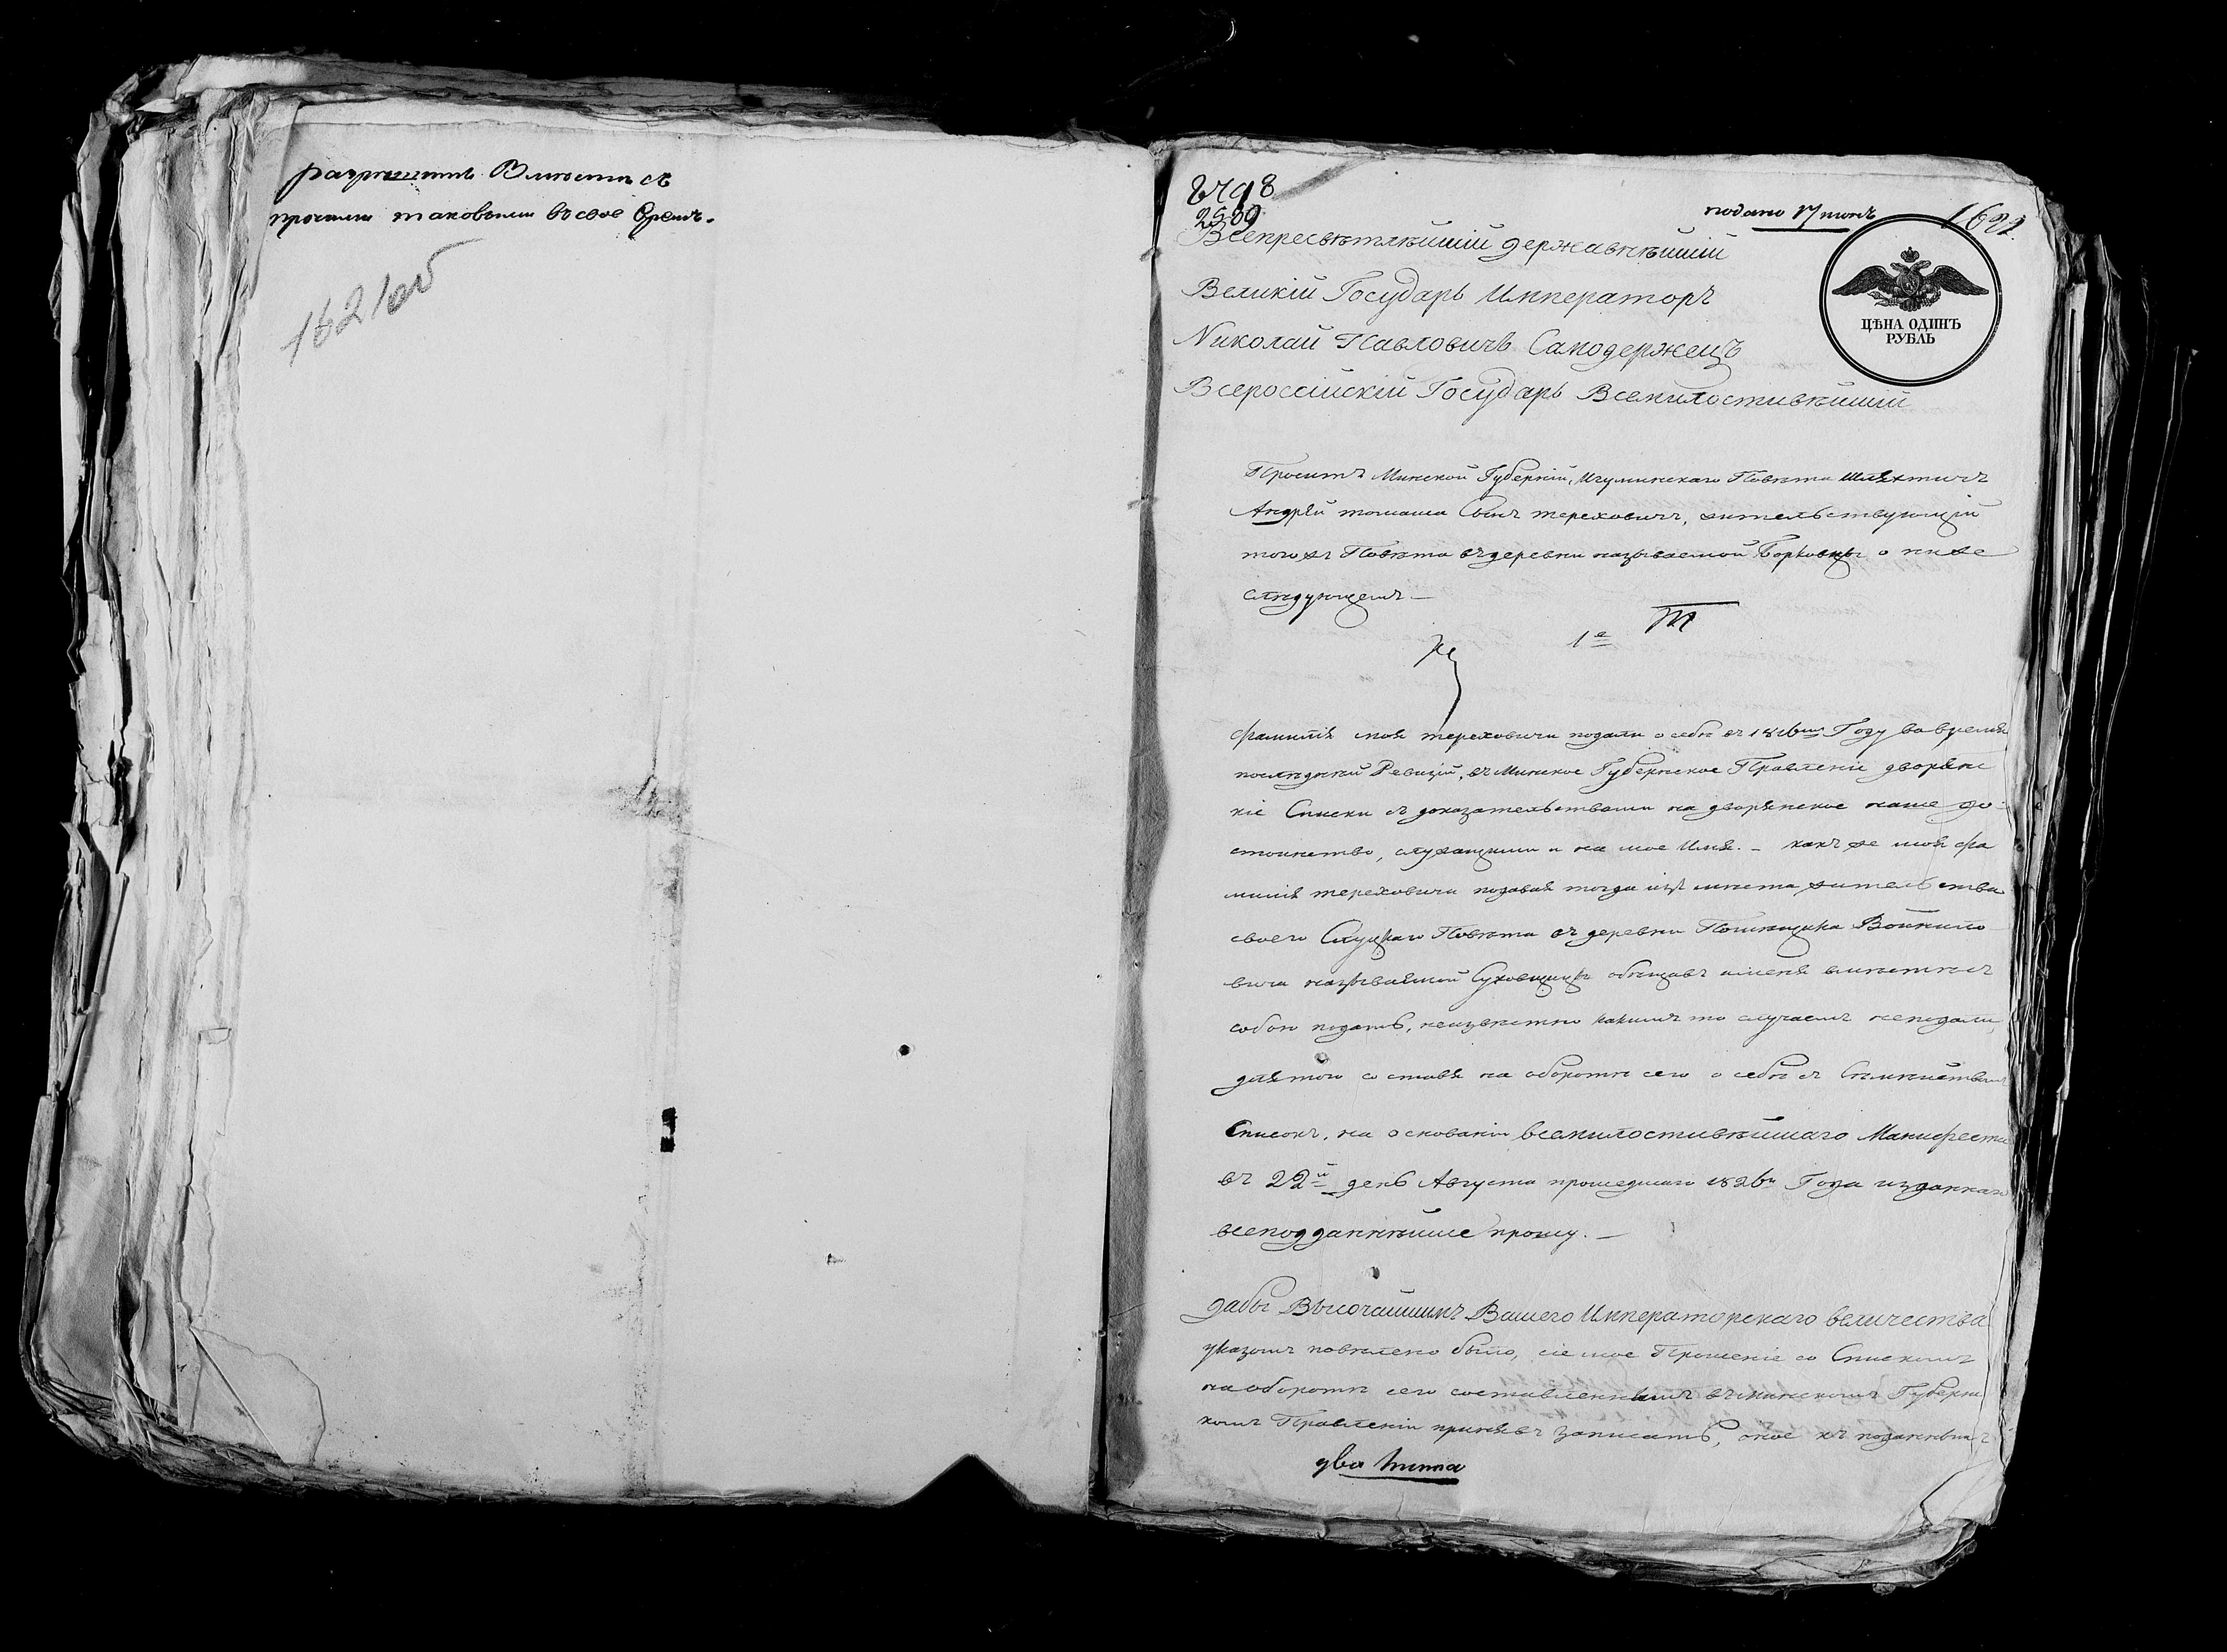 разрешить Вместе съ
прочими таковыми въ свое Время.
1621 об
8498
2589
подано 17 июнь
1622.
ЦѢНА ОДИНЪ
РУБЛЬ
Всепресвѣтлѣйшій державнѣйшій
Великій Государь Императоръ
Николай Павловичъ Самодержецъ
Всероссійскій Государь Всемилостивѣйшій
Проситъ Минской Губерніи, Игуминскаго Повѣта шляхтичъ
Андрей томаша Сынъ тереховичъ, жительствующій
того жъ Повѣта въ деревни называемой о ниже
слѣдующемъ —
1е
фамилія моя тереховичи подали о себѣ въ 1816мъ Году во время
послѣдней Ревизіи, въ Минское Губернское Правленіе дворянс
кіе Списки съ доказательствами на дворянское наше до-
стоинство, служащими и на мое Имя. — какъ же моя фа
милія тереховичи подавая тогда изъ мѣста жительства
своего Слуцкаго Повѣта въ деревни Помѣщика Войнило
вича называемой обѣщавъ и меня вмѣстѣ съ
собою подать, неизвѣстно какимъ то случаемъ неподали,
для того составя на оборотѣ сего о себѣ съ Семействомъ
Списокъ, на основаніи всемилостивѣйшаго Манифеста
въ 22й день Августа прошедшаго 1826го Года изданнаго
всеподданнѣйше прошу. —
дабы Высочайшимъ Вашего Императорскаго величества
указомъ повелено было, сіе мое Прошеніе со Спискомъ
на оборотѣ сего составленнымъ въ минскомъ Губернс
комъ Правленіи принявъ записать, оное къ поданнымъ
два